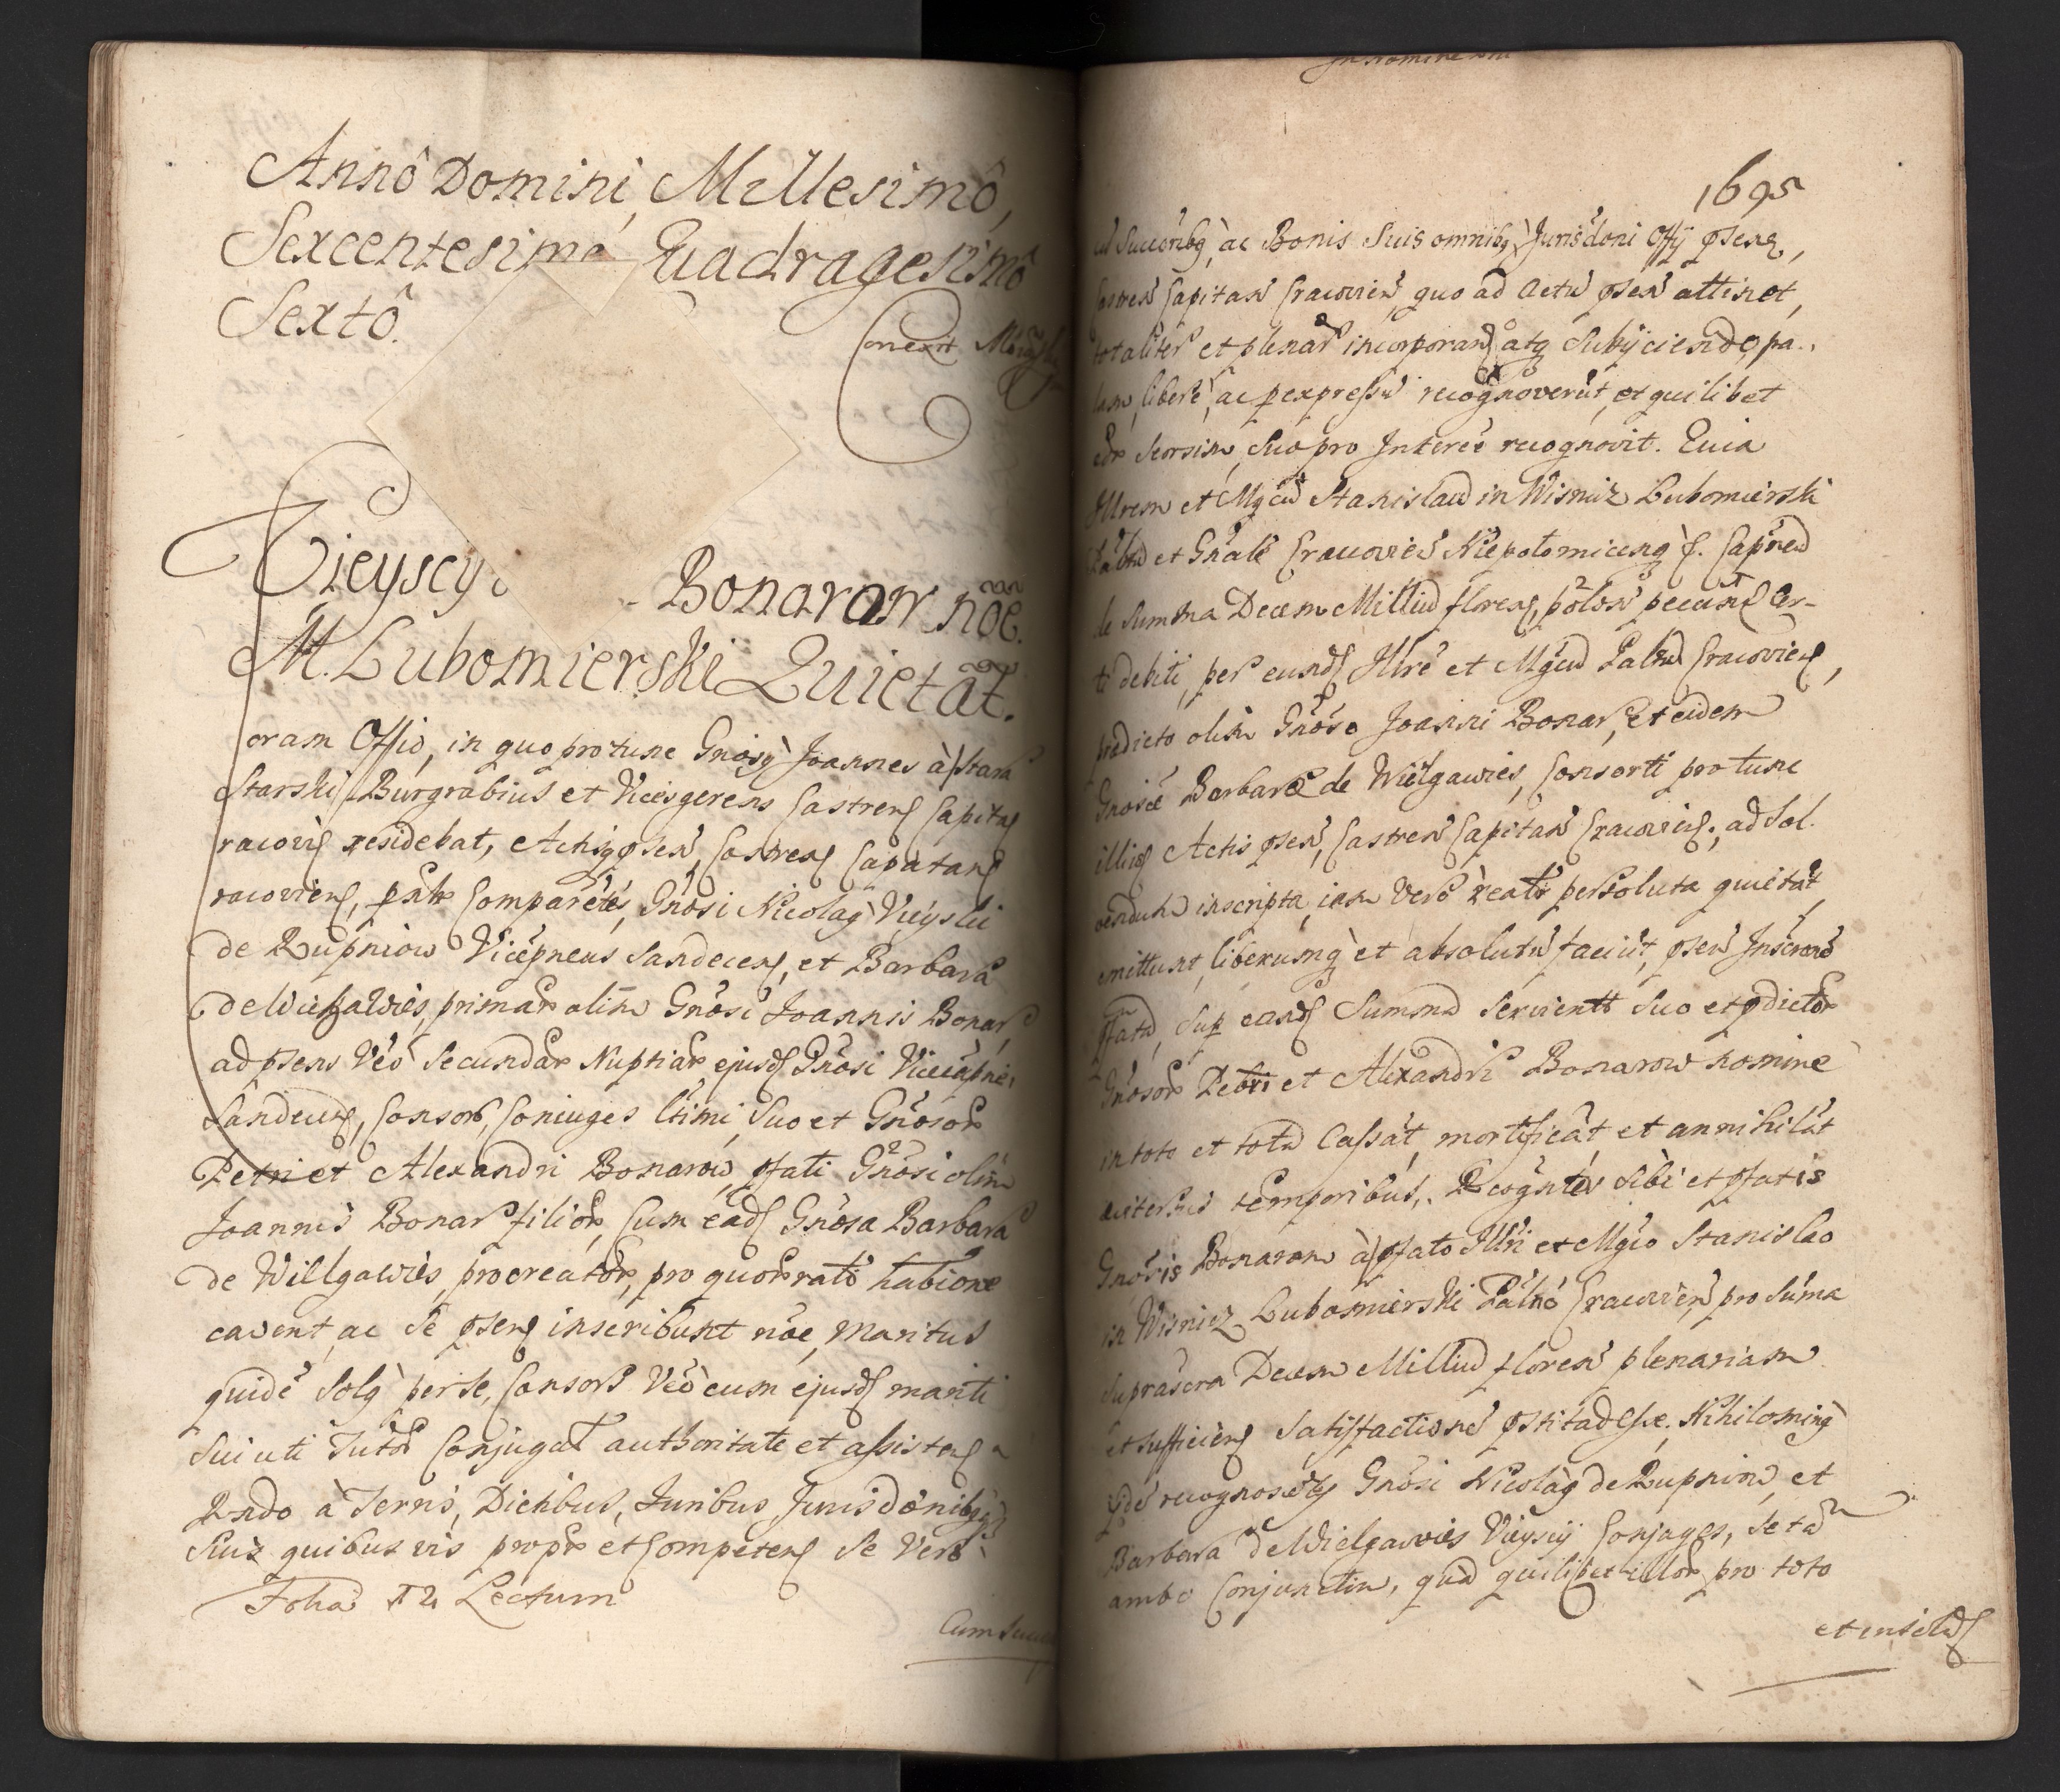 Annô Domini Millesimô,
Sexcentesimô Quadragesimô
Sextô.
Conexit
Vieyscy Bonarow nôe.
M. Lubomierski Quietat.
oram Offio, in quo protunc Gnosq Joannes à
Starski Burgrabius et Vicesgerens Castren Capitan
racovien residebat, Actisq psen Castren Capitan
racovien, psnlr Comparentes, Gnosi Nicolaq Vieyski
de Rupniow Vicepneus Sandecen, et Barbara
de Wielgawies, primar olim Gnosi Joannis Bonar,
ad psens Vero Secundar Nuptiar ejusd Gnosi Vicecapnei
Sandecen, Consors, Coniuges ltimi, Suo et Gnosor
Petri et Alexandri Bonarow, pfati Gnosi olim
Joannis Bonar filior, Cum ead Gnosa Barbara
de Willgawies, procreator, pro quor rati habione
cavent, ac Se psen inscribunt nôe, Maritus
quidê Solq per se, Consors Veô cum ejusd mariti
Sui uti Tutor Conjugal authoritate et assisten
Rndo à Terris, Dictibus, Juribus Jurisdônibq
Suis quibusvis propr et Competen Se Verò
Folia 12 Lectum
Cum
In nomine
1695
Succôribq, ac Bonis Suis omnibq, Jurisdoni Offy psen,
Castren Capitan Cracovien, quo ad Actu psen attinet,
totaliter et plenar incorporan atq Subyciendo, pa-
lam, liberè, ac p expressu recognoverut, et quilibet
eor Seorsim, Suo pro Interee recognovit. Quia
Illrem et Mgcu Stanislau in Wisnicz Lubomierski
Palnu et Gnale Cracovien Niepolomicenq f. Capneu
de Summa Decem Milliu floren, polon pecun Cer-
ti debiti, per eund Illre et Mgcu Palnu Cracovien,
predicto olim Gnoso Joanni Bonar, et eidem
Gnosae Barbarae de Wielgawies, Consorti protunc
illius Actis psen, Castren Capitan Cracovien, ad Sol-
vendum inscripta, iam Vero realr persoluta quietat,
emittunt, liberumq et absolutu faciut, psen Inscrone
pfata, Sup eand Summa Servient Suo et pdictor
Gnosor Petri et Alexandri Bonarow nomine
in toto et totu Cassat, mortificat et annihilat
aeternis temporibus. Recogntes Sibi et pfatis
Gnosis Bonarom à pfato Illri et Mgco Stanislao
in Wisnicz Lubomierski Palno Cracovien pro Suma
Suprascra Decem Milliu floren plenariam
et Sufficien Satisfactione pstita esse. Nihilominq
ide recognoscetes Gnosi Nicolaq de Rupniow, et
Barbara de Wielgawies Vieyscy Conjuges, se ta
ambo Conjunctim, qua quilibet illor pro toto
et insold